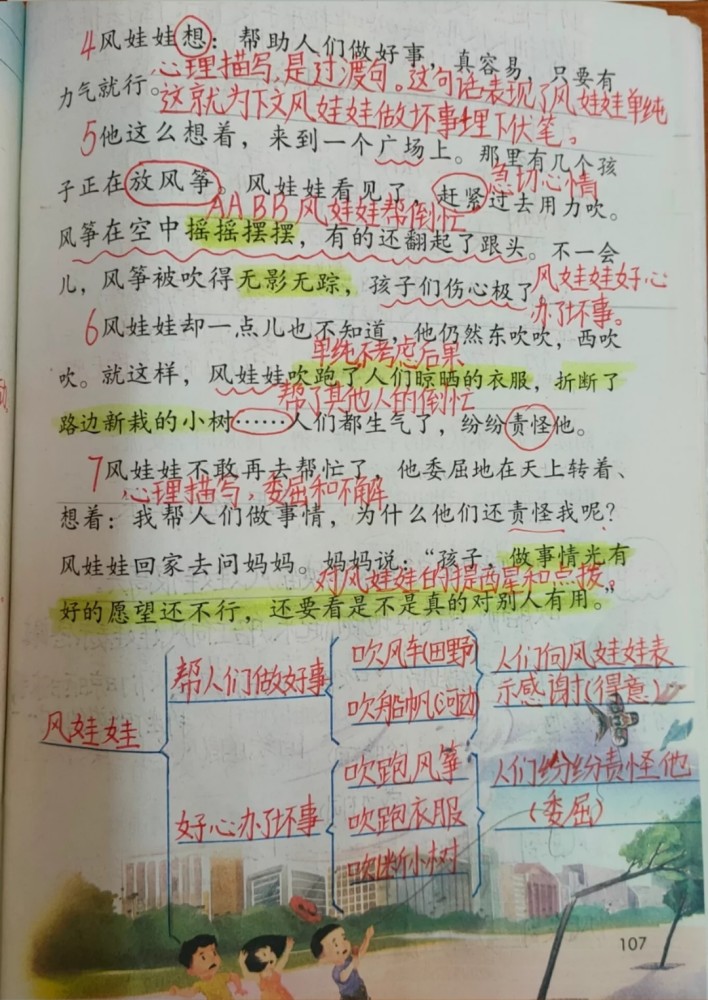 4风娃娃想：帮助人们做好事，真容易，只要有
力气就行。
心理描写，是过渡句。这句话表现了风娃娃单纯
这就为下文风娃娃做坏事埋下伏笔。
5他这么想着，来到一个广场上。那里有几个孩
子正在放风筝。风娃娃看见了，赶紧过去用力吹。
急切心情
AABB 风娃娃帮倒忙
风筝在空中摇摇摆摆，有的还翻起了跟头。不一会
儿，风筝被吹得无影无踪，孩子们伤心极了
风娃娃好心
办了坏事。
6风娃娃却一点儿也不知道，他仍然东吹吹，西吹
单纯不考虑后果
吹。就这样，风娃娃吹跑了人们晾晒的衣服，折断了
帮了其他人的倒忙
路边新栽的小树……人们都生气了，纷纷责怪他。
7风娃娃不敢再去帮忙了，他委屈地在天上转着、
心理描写，委屈和不解
想着：我帮人们做事情，为什么他们还责怪我呢？
风娃娃回家去问妈妈。妈妈说：“孩子，做事情光有
对风娃娃的提醒和点拨。
好的愿望还不行，还要看是不是真的对别人有用。”
风娃娃
帮人们做好事
吹风车(田野)
吹船帆(河边)
人们向风娃娃表
示感谢(得意)
好心办了坏事
吹跑风筝
吹跑衣服
吹断小树
人们纷纷责怪他
(委屈)
107